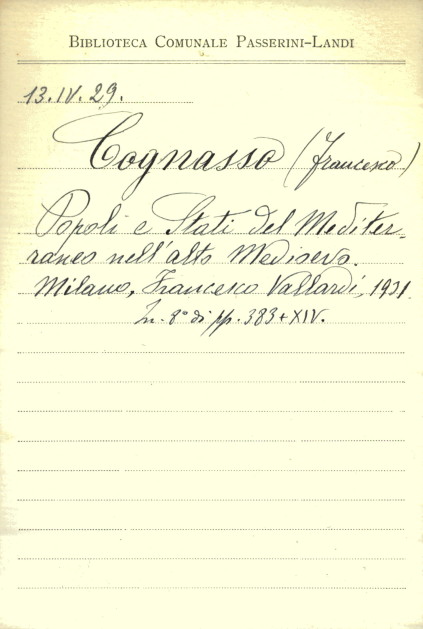 BIBLIOTECA COMUNALE PASSERINI-LANDI
13.IV.29.
Cognasso (Francesco)
Popoli e Stati del Mediter-
raneo nell'alto Medioevo.
Milano, Francesco Vallardi, 1931.
In. 8° di pp. 383+XIV.